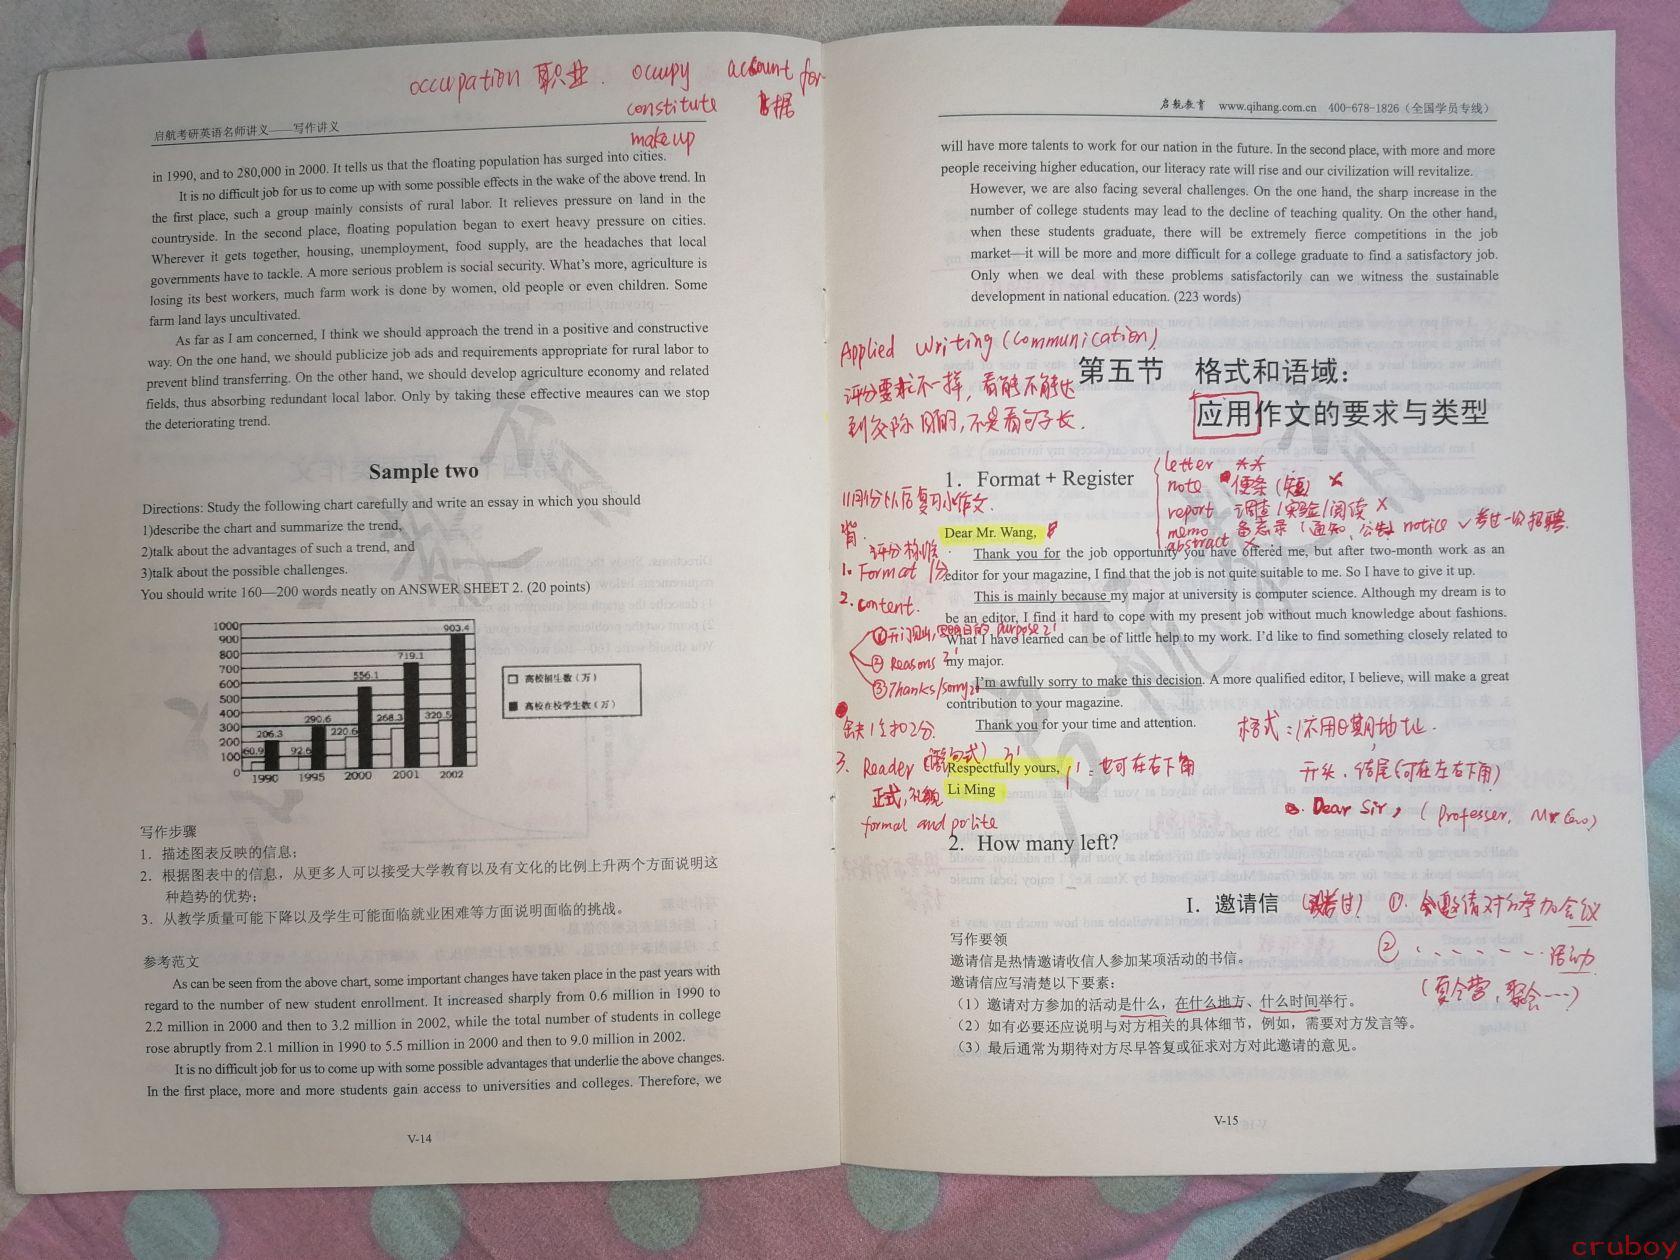 occupation 职业. occupy account for
constitute 占据
make up
启航考研英语名师讲义——写作讲义
in 1990, and to 280,000 in 2000. It tells us that the floating population has surged into cities.
It is no difficult job for us to come up with some possible effects in the wake of the above trend. In
the first place, such a group mainly consists of rural labor. It relieves pressure on land in the
countryside. In the second place, floating population began to exert heavy pressure on cities.
Wherever it gets together, housing, unemployment, food supply, are the headaches that local
governments have to tackle. A more serious problem is social security. What's more, agriculture is
losing its best workers, much farm work is done by women, old people or even children. Some
farm land lays uncultivated.
As far as I am concerned, I think we should approach the trend in a positive and constructive
way. On the one hand, we should publicize job ads and requirements appropriate for rural labor to
prevent blind transferring. On the other hand, we should develop agriculture economy and related
fields, thus absorbing redundant local labor. Only by taking these effective meaures can we stop
the deteriorating trend.
Sample two
Directions: Study the following chart carefully and write an essay in which you should
1)describe the chart and summarize the trend,
2)talk about the advantages of such a trend, and
3)talk about the possible challenges.
You should write 160—200 words neatly on ANSWER SHEET 2. (20 points)
1000
900
800
700
600
500
400
300
200
100
0
60.9 206.3 92.6 290.6 220.6 556.1 268.3 719.1 320.5 903.4
1990 1995 2000 2001 2002
高校招生数（万）
高校在校学生数（万）
写作步骤
1．描述图表反映的信息；
2．根据图表中的信息，从更多人可以接受大学教育以及有文化的比例上升两个方面说明这
种趋势的优势；
3．从教学质量可能下降以及学生可能面临就业困难等方面说明面临的挑战。
参考范文
As can be seen from the above chart, some important changes have taken place in the past years with
regard to the number of new student enrollment. It increased sharply from 0.6 million in 1990 to
2.2 million in 2000 and then to 3.2 million in 2002, while the total number of students in college
rose abruptly from 2.1 million in 1990 to 5.5 million in 2000 and then to 9.0 million in 2002.
It is no difficult job for us to come up with some possible advantages that underlie the above changes.
In the first place, more and more students gain access to universities and colleges. Therefore, we
V-14
启航教育 www.qihang.com.cn 400-678-1826（全国学员专线）
will have more talents to work for our nation in the future. In the second place, with more and more
people receiving higher education, our literacy rate will rise and our civilization will revitalize.
However, we are also facing several challenges. On the one hand, the sharp increase in the
number of college students may lead to the decline of teaching quality. On the other hand,
when these students graduate, there will be extremely fierce competitions in the job
market—it will be more and more difficult for a college graduate to find a satisfactory job.
Only when we deal with these problems satisfactorily can we witness the sustainable
development in national education. (223 words)
Applied Writing (Communication)
评分要求不一样，看能不能达
到交际目的，不是看句子长.
第五节 格式和语域：
应用作文的要求与类型
1. Format + Register
letter **
note 便条（短）×
report 调查/实验/阅读 ×
memo 备忘录（通知、公告）notice √ 考过一次招聘
abstract ×
11月份以后复习小作文.
背.
评分标准
1. Format 1分
2. content.
① 开门见山,写明目的 purpose 2'
② Reasons 2'
③ Thanks/sorry 2'
缺1年扣2分.
3. Reader
正式,礼貌
formal and polite
Dear Mr. Wang,
Thank you for the job opportunity you have offered me, but after two-month work as an
editor for your magazine, I find that the job is not quite suitable to me. So I have to give it up.
This is mainly because my major at university is computer science. Although my dream is to
be an editor, I find it hard to cope with my present job without much knowledge about fashions.
What I have learned can be of little help to my work. I'd like to find something closely related to
my major.
I'm awfully sorry to make this decision. A more qualified editor, I believe, will make a great
contribution to your magazine.
Thank you for your time and attention.
Respectfully yours, 1' : 也可在右下角
Li Ming
格式：1不用日期地址.
开头、结尾(可在左右下角)
Dear Sir, (Professer, Mr.
2. How many left?
I．邀请信
① 邀请对方参加会议
② 活动
（夏令营，聚会…）
写作要领
邀请信是热情邀请收信人参加某项活动的书信。
邀请信应写清楚以下要素：
（1）邀请对方参加的活动是什么，在什么地方、什么时间举行。
（2）如有必要还应说明与对方相关的具体细节，例如，需要对方发言等。
（3）最后通常为期待对方尽早答复或征求对方对此邀请的意见。
V-15
cruboy